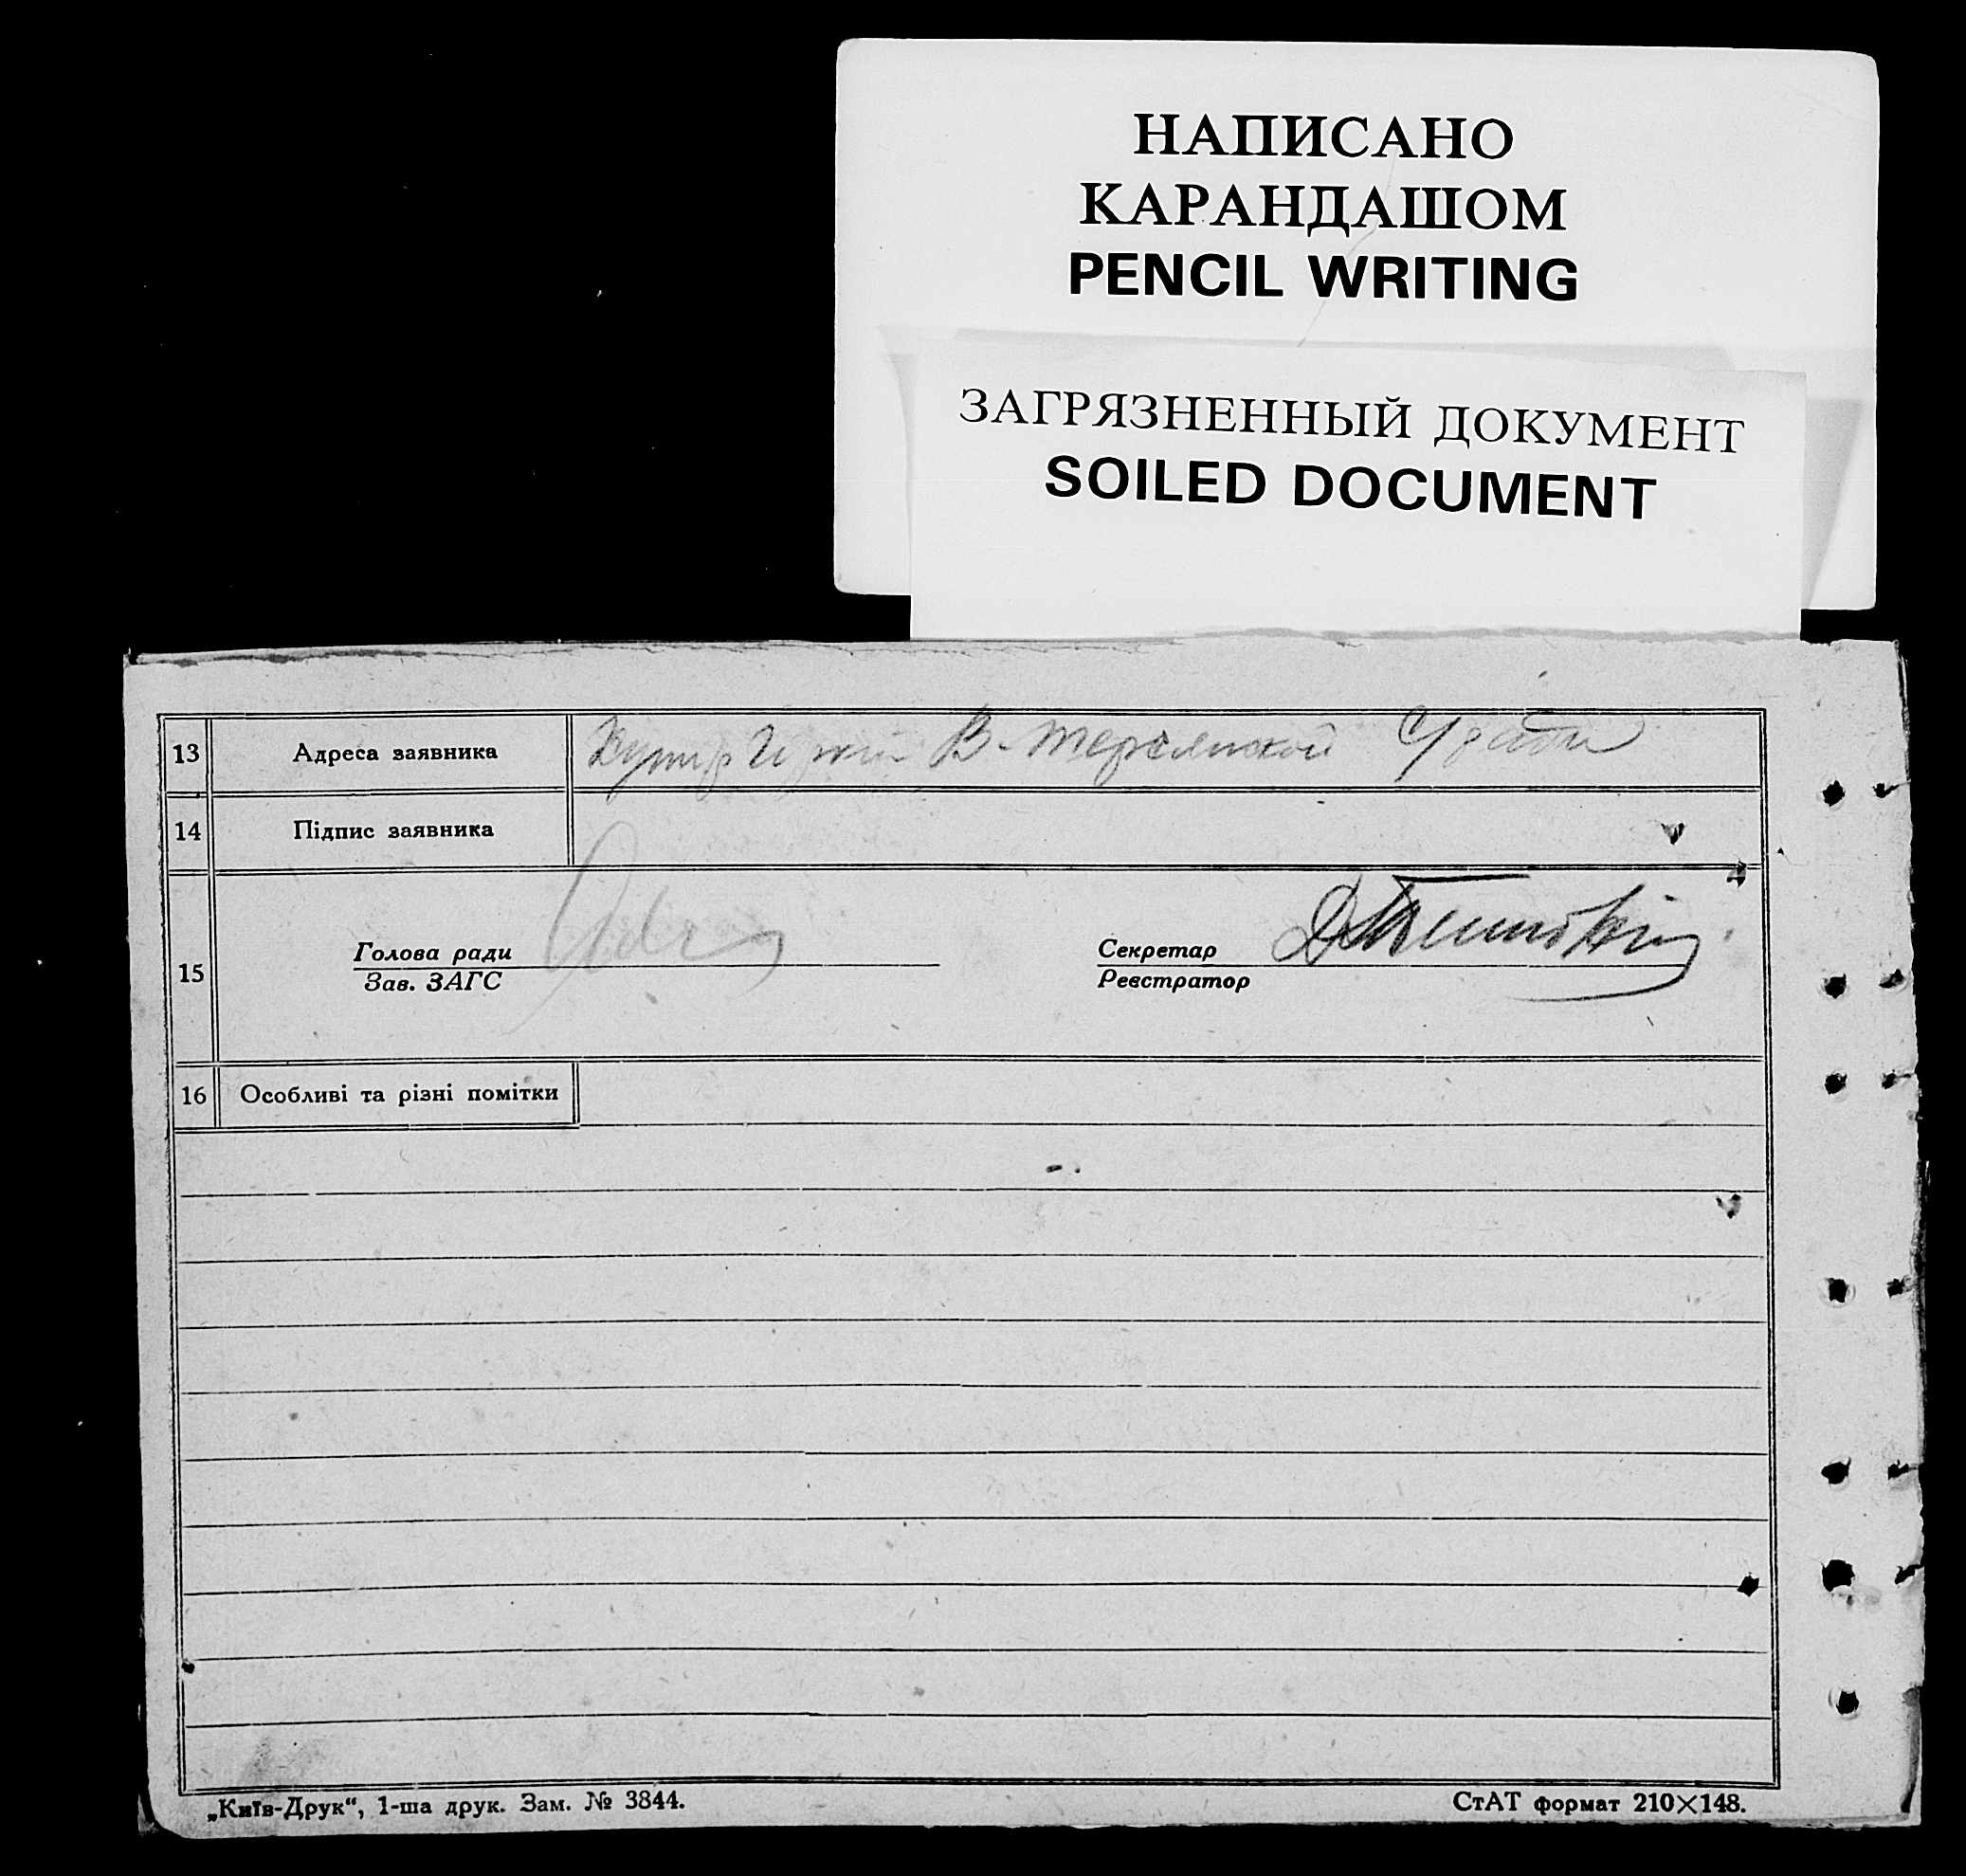 НАПИСАНО
КАРАНДАШОМ
PENCIL WRITING
ЗАГРЯЗНЕННЫЙ ДОКУМЕНТ
SOILED DOCUMENT
13 Адреса заявника В-
14 Підпис заявника
15
Голова ради
Зав. ЗАГС
Секретар
Реєстратор
16 Особливі та різні помітки
„Київ-Друк“, 1-ша друк. Зам. № 3844.
СтАТ формат 210×148.